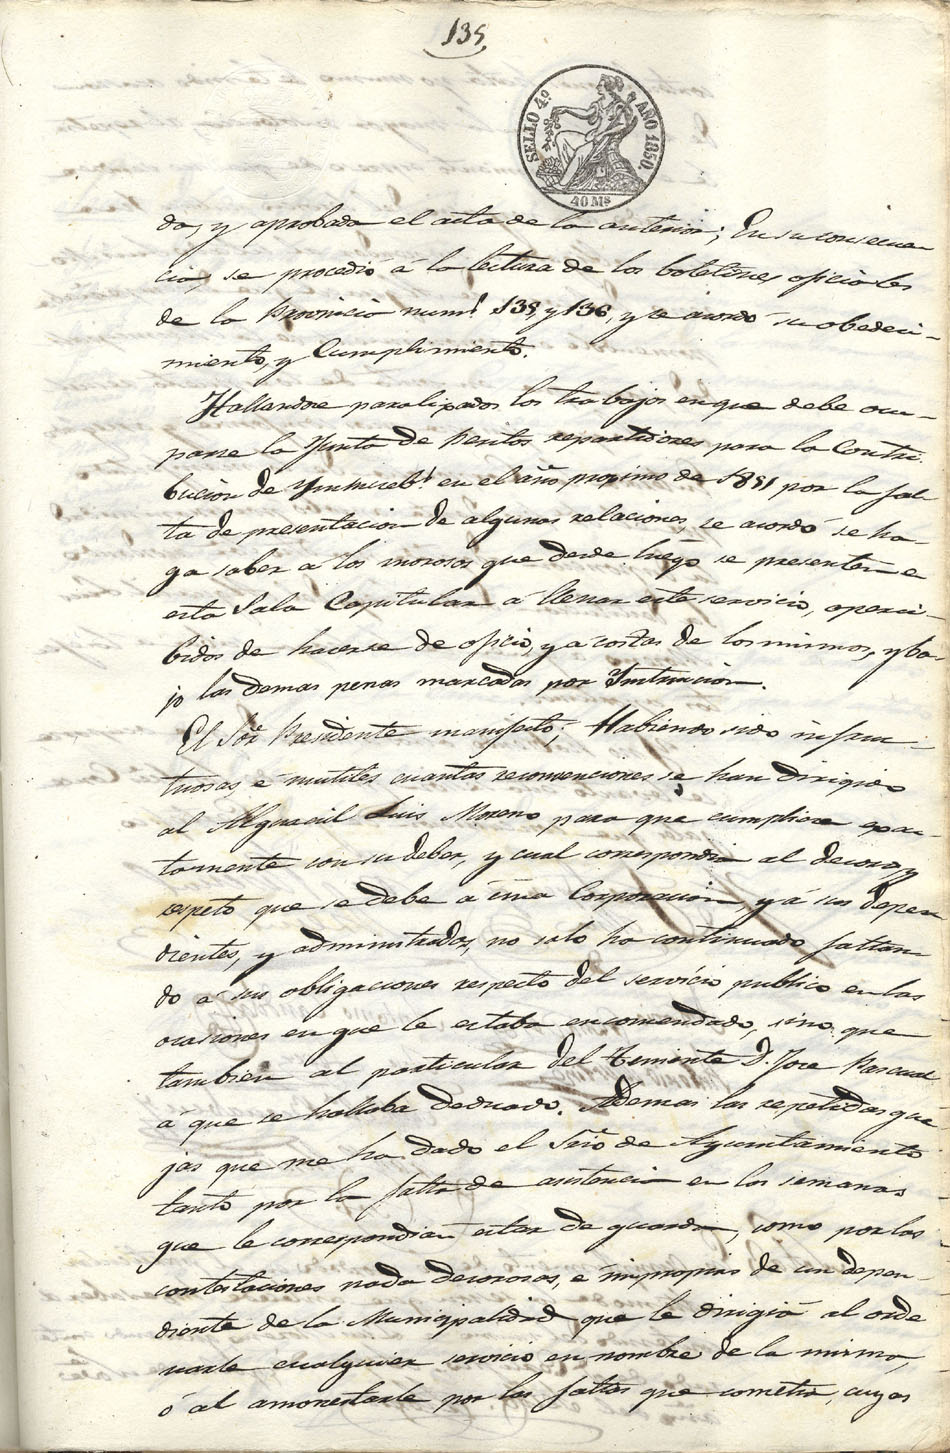 135
SELLO 4º AÑO 1850.
40 Ms
da, y aprobada el acta de la anterior; En su consecuen-
cia, se procedió á la lectura de los boletines oficiales
de la Provincia num.s 135 y 136, y se acordó su obedeci-
miento, y Cumplimiento.
Hallandose paralizados los trabajos en que debe ocu-
parse la Junta de Peritos repartidores para la Contri-
bucion de Ynmueb.s en el año proximo de 1851 por la fal-
ta de presentacion de algunas relaciones, se acordó se ha-
ga saber a los morosos que desde luego se presenten en
esta Sala Capitular a llenar este servicio, aperci-
bidos de hacerse de oficio, y a costas de los mismos, y ba-
jo las demas penas marcadas por Instruccion.
El Sor. Presidente manifestó; Habiendo sido infruc-
tuosas, e inutiles cuantas reconvenciones se han dirigido
al Alguacil Luis Moreno para que cumpliera exac-
tamente con su deber, y cual correspondia al decoro, y
respeto que se debe á una Corporacion, y á sus depen
dientes, y administrados, no solo ha continuado faltan-
do a sus obligaciones respecto del servicio publico en las
ocasiones en que le estaba encomendado, sino que
tambien al particular del Teniente D. Jose Pascual
á que se hallaba dedicado. Ademas las repetidas que-
jas que me ha dado el Srio de Ayuntamiento
tanto por la falta de asistencia en las semanas
que le correspondian estar de guarda, como por las
contestaciones nada decorosas, e impropias de un depen-
diente de la Municipalidad que le dirigia al orde
narle cualquier servicio en nombre de la misma,
ó al amonestarle por las faltas que cometia, cuyas